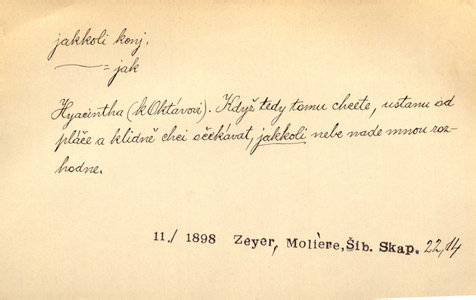 jakkoli konj.
— = jak
Hyacintha (k Oktávovi). Když tedy tomu chcete, ustanu od
pláče a klidně chci očekávat, jakkoli nebe nade mnou roz-
hodne.
11./ 1898 Zeyer, Molière, Šib. Skap. 22,14